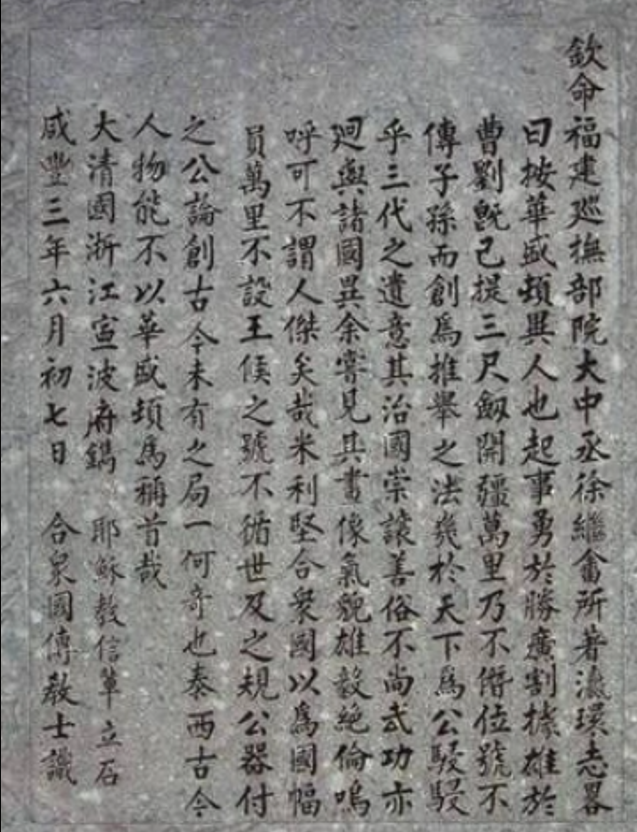 欽命福建廵撫部院大中丞徐繼畬所著瀛環志畧
曰按華盛頓異人也起事勇於勝廣割據雄於
曹劉旣已提三尺劔開疆萬里乃不僭位號不
傳子孫而創爲推舉之法幾於天下爲公駸駸
乎三代之遺意其治國崇讓善俗不尚武功亦
廻與諸國異余嘗見其畫像氣貌雄毅絕倫嗚
呼可不謂人傑矣哉米利堅合衆國以爲國幅
員萬里不設王侯之號不循世及之規公器付
之公論創古今未有之局一何奇也泰西古今
人物能不以華盛頓爲稱首哉
大清國浙江寧波府鐫 耶穌教信輩立石
咸豐三年六月初七日 合衆國傳教士識